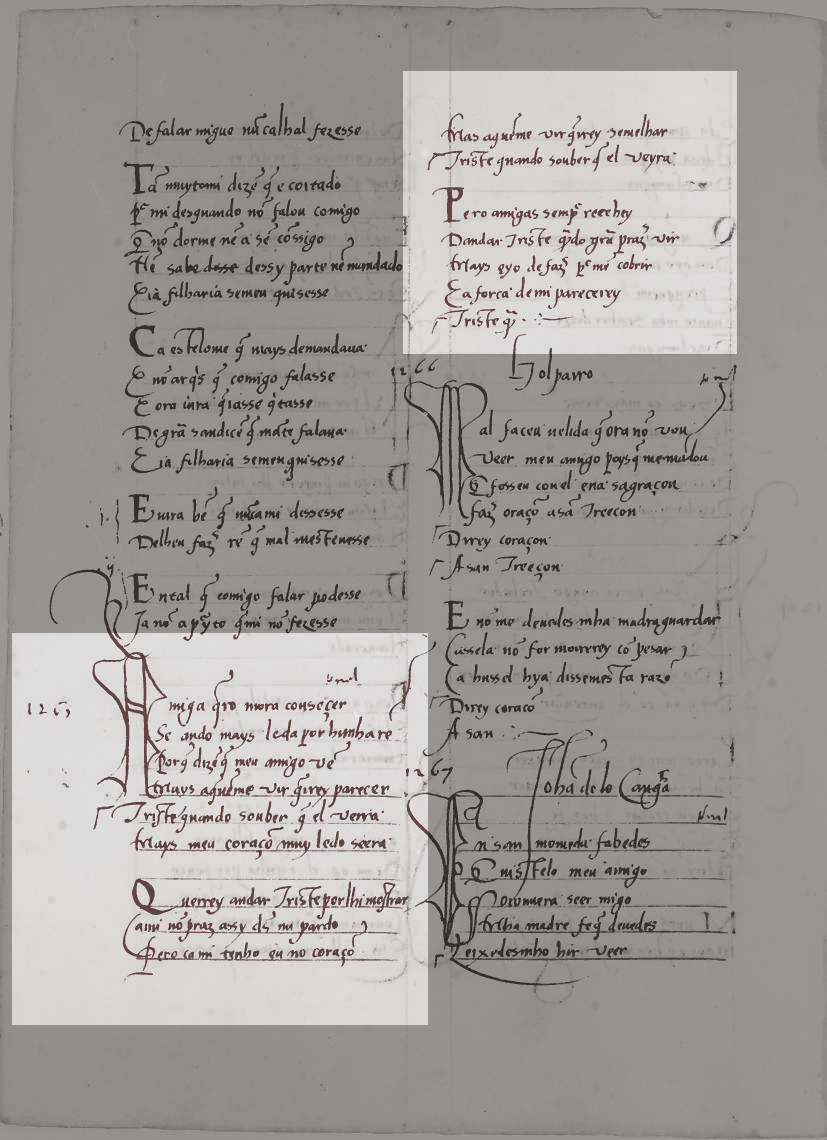 De falar migue nūcalhal fezesse
Tā muytomi dizē q̄ e coitado
p̄ mi desquando nō falou comigo
q̄ nō dorme nē a sē cōssigo
Nē sabe desse dessy parte nē mandado
E ia filharia semeu quisesse
Ca estelome q̄ mays demandaua
E nō arq̄s q̄ comigo falasse
E oro
Degrā sandicē q̄ mate falaua
E ia filharia semeu quisesse
E uira bē q̄ nūcami dissesse
Delheu faz̄ rē q̄ mal mestenesse
E ental q̄ comigo falar podesse
Ia nō a p̄yto q̄mi nō fezesse
1265
Amiga q̄ro mora conseçer
Se ando mays leda por hunha rē
Porq̄ dizē q̄ meu amigo uē
Mays aquēme uir q̄irey parecer
Triste quando souber q̄ el uerra
Mays meu coraçō muy ledo seera
Querrey andar Triste por lhi mostrar
Ca mi nō praz assy ds̄ mi pardō
Pero ca mi tenho eu no coraçō
Mas aquēme uir q̄irey semelhar
Triste quando souber q̄ el ueyra
Pero amigas semp̄ reeehey
Dandar Triste q̄do grā praz uir
Mays eyo de faz̄ p̄ me cobrir
E a força de mi parecerey
Triste q̄
1266
Golparro
Mal faceu uelida q̄ ora nō uou
Veer meu amigo poys q̄ me mādou
Q̄ fosseu con el ena sagraçon
faz̄ oraçō a sā Treeçon
Direy coraçon
A san Treeçon
E no me deuedes mha madraguardar
Cassela nō for moirerey cō pesar
Ca hussel hya dissemesta razō
Direy coracō
A san
1267
Ioha de lo Cangā
En san momedu sabedes
Q̄ uistelo meu amigo
Oiouuera seer migo
Mha madre feq̄ deuedes
Leixedesmho hir ueer